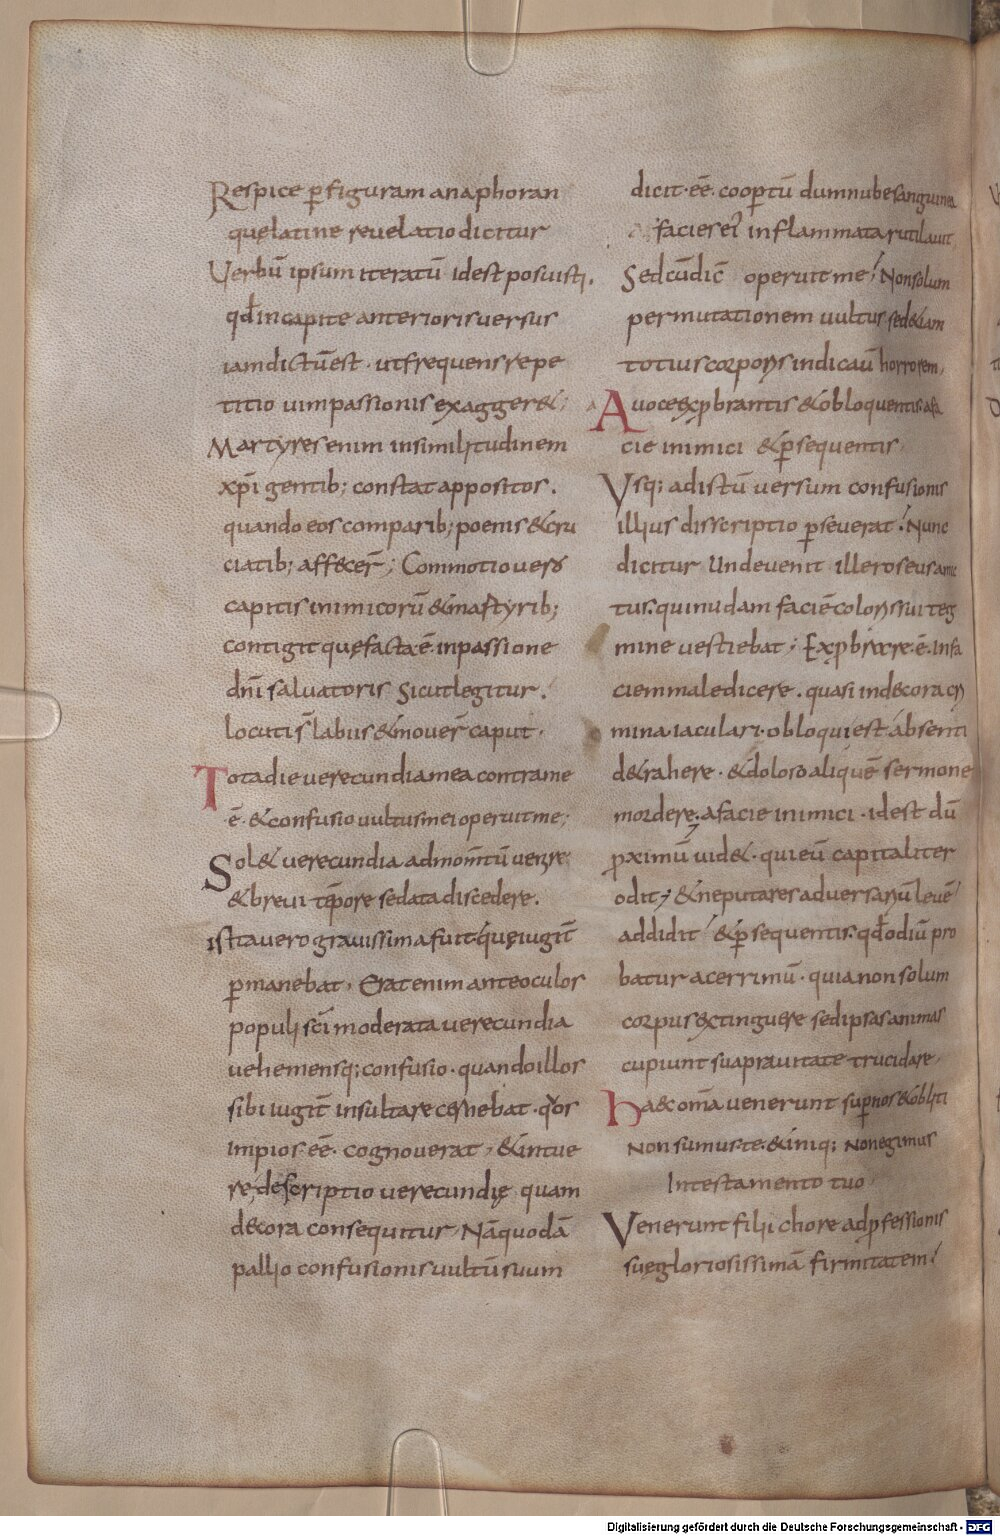 Respice ꝑ figuram anaphoran
quę latine revelatio dicitur
Verbū ipsum iteratū idest posuisti.
qđ in capite anterioris versus
iam dictū est · ut frequens repe
titio vim passionis exagger&;
Martyres enim in similitudinem
xp̄i gentib; constat appositos.
quando eos comparib; poenis & cru
ciatib; affecer̄; Commotio vero
capitis inimicorū & in martyrib;
contigit quę facta ē in passione
dn̄i salvatoris Sicut legitur.
locuti s̄ labiis & mover̄ caput.
Tota die verecundia mea contra me
ē · & confusio vultus mei operuit me;
Sol& verecundia ad mom̄tū venire
& brevi tēpore sedata discedere.
ista vero gravissima fuit quę iugit̄
ꝑmanebat, Erat enim ante oculos
populi sc̄i moderata verecundia
vehemensq; confusio · quando illos
sibi iugit̄ insultare cernebat · qˢ
impios eē cognoverat, & intue
re descriptio verecundię quam
decora consequitur, Nā quodā
pallio confusionis vultū suum
dicit · eē · cooꝑtū dum nube sanguinea
facies ei' inflammata rutilavit
Sed cū dic̄ operuit me; Non solum
permutationem vultus sed &iam
totius corporis indicav̄ horrorem,
A voce exꝓbrantis & obloquentis · a fa
cie inimici & ꝑsequentis,
Vsq; ad istū versum confusionis
illius discriptio ꝑseverat. Nunc
dicitur Unde venit ille roseus amic
tus. qui nudam faciē coloris sui teg
mine vestiebat; Exꝓbrare · ē · In fa
ciem maledicere . quasi indecora cri
mina iaculari · obloqui est absenti
d&rahere · & doloso aliquē sermone
mordere; a facie inimici · idest dū
ꝓximū vid& · qui eū capitaliter
odit; & ne putares adversariū levē
addidit & ꝑsequentis. qđ odiū pro
batur acerrimū · quia non solum
corpus extinguere sed ipsas animas
cupiunt sua pravitate trucidare,
Haec om̄a venerunt suꝑ nos & obliti
non sumus te · & iniq; non egimus
In testamento tuo
Venerunt filii chore ad ꝓfessionis
suę gloriosissimā firmitatem.
Digitalisierung gefördert durch die Deutsche Forschungsgemeinschaft - DFG